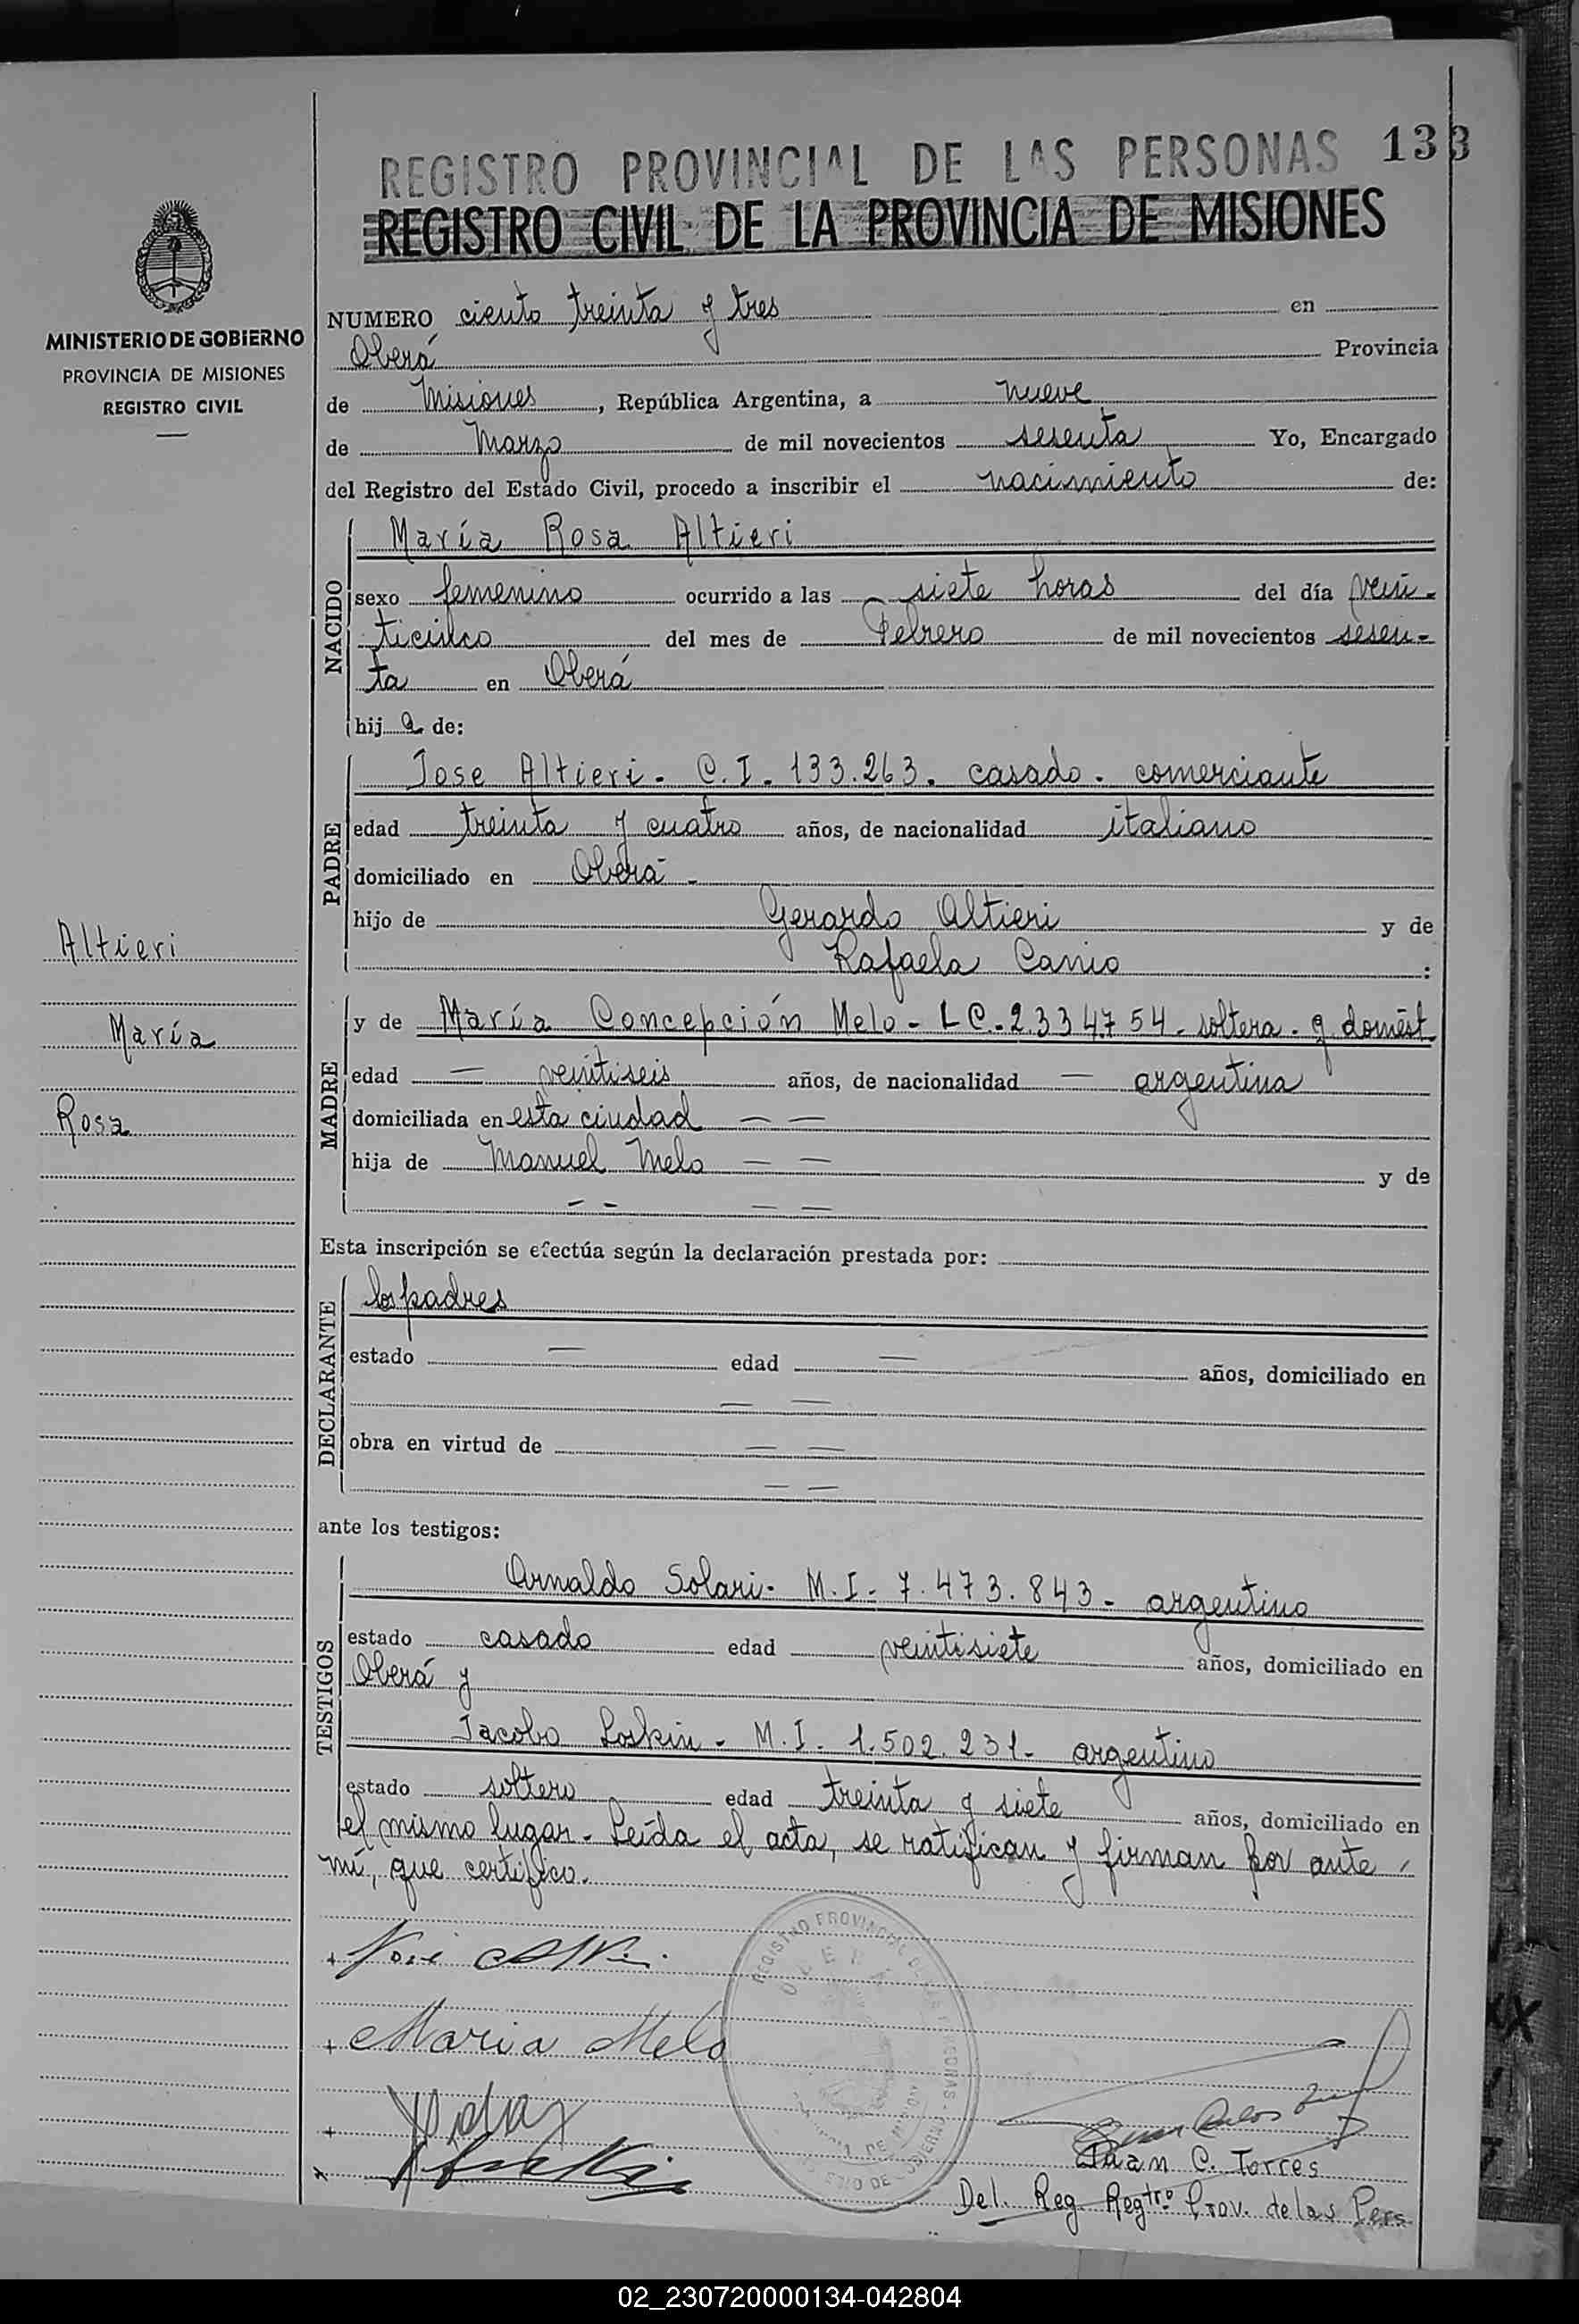 REGISTRO PROVINCIAL DE LAS PERSONAS 133
REGISTRO CIVIL DE LA PROVINCIA DE MISIONES
MINISTERIO DE GOBIERNO
PROVINCIA DE MISIONES
REGISTRO CIVIL
Altieri
María
Rosa
NUMERO ciento treinta y tres en
Oberá Provincia
de Misiones, República Argentina, a nueve
de Marzo de mil novecientos sesenta Yo, Encargado
del Registro del Estado Civil, procedo a inscribir el nacimiento de:
NACIDO
María Rosa Altieri
sexo femenino ocurrido a las siete horas del día vein-
ticinco del mes de Febrero de mil novecientos sesen-
ta en Oberá
hija de:
PADRE
Jose Altieri - C.I. 133.263. casado. comerciante
edad treinta y cuatro años, de nacionalidad italiano
domiciliado en Oberá -
hijo de Gerardo Altieri y de
Rafaela Canio :
MADRE
y de María Concepción Melo - L C. 2.334.754 - soltera - q. domést.
edad — veintiseis años, de nacionalidad — argentina
domiciliada en esta ciudad — —
hija de Manuel Melo — — y de
- - — —
Esta inscripción se efectúa según la declaración prestada por:
DECLARANTE
los padres
estado — edad — años, domiciliado en
— —
obra en virtud de — —
— —
ante los testigos:
TESTIGOS
Arnaldo Solari - M.I - 7.473.843 - argentino
estado casado edad veintisiete años, domiciliado en
Oberá y
Jacobo Loskin - M.I. 1.502.231 - argentino
estado soltero edad treinta y siete años, domiciliado en
el mismo lugar. Leída el acta, se ratifican y firman por ante
mí, que certifico.
José Altieri
Maria Melo
REGISTRO PROVINCIAL DE LAS PERSONAS
OBERA
Juan C. Torres
Del. Reg Regtro Prov. de las Pers
02_230720000134-042804